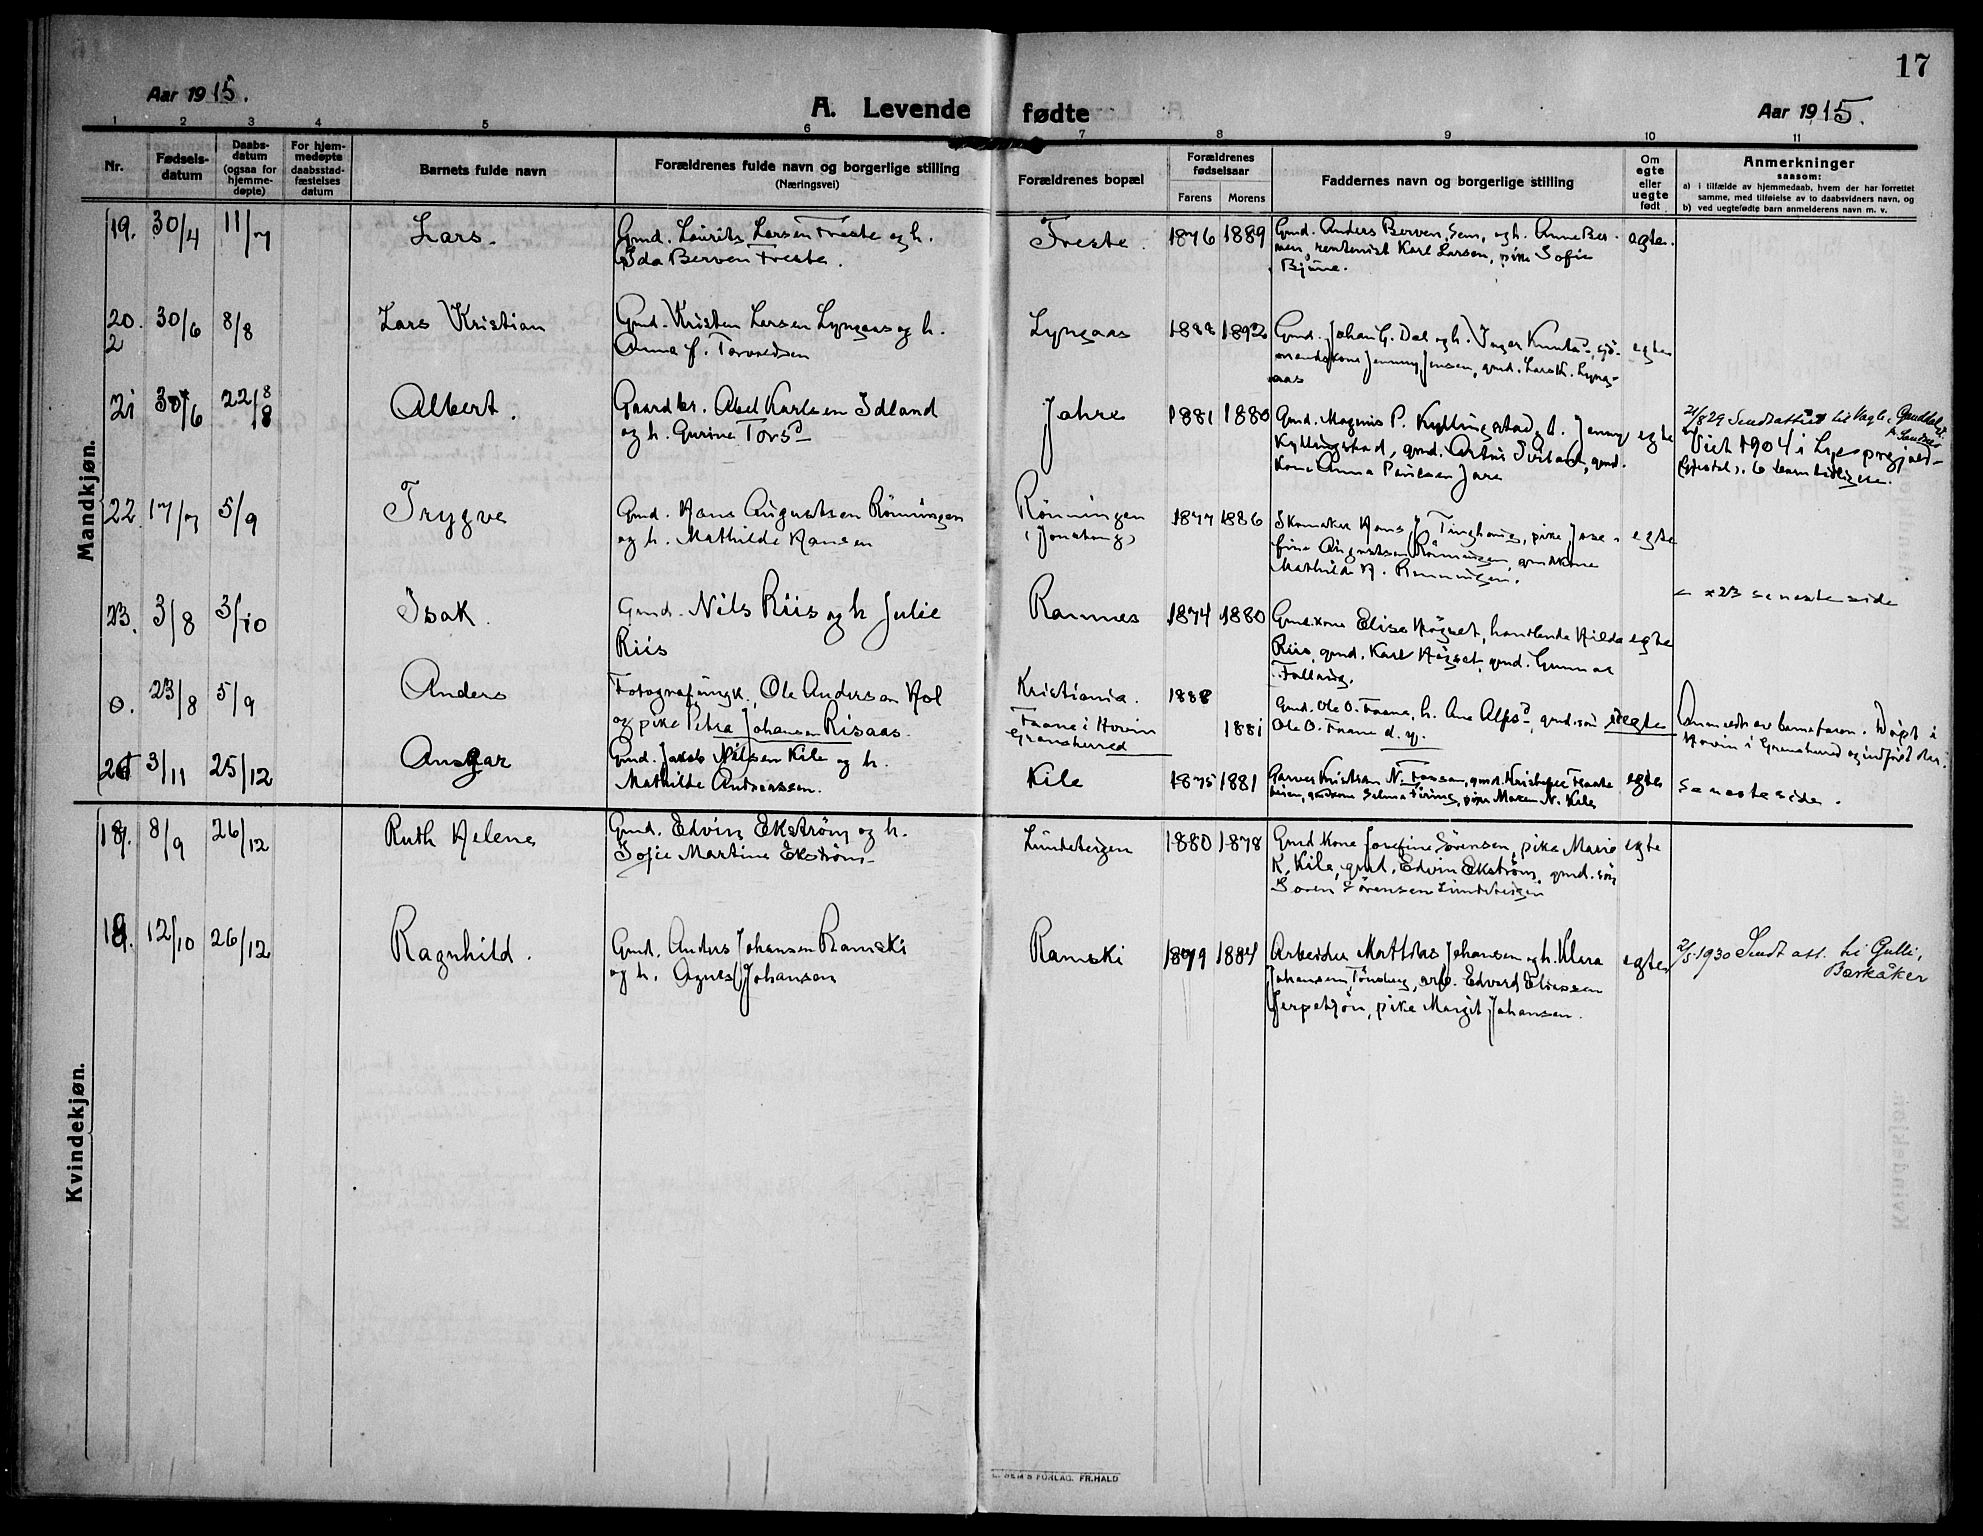 17
Aar 1915.
A. Levende fødte
Aar 1915.
1 2 3 4 5 6 7 8 9 10 11
Nr.
Fødsels-
datum
Daabs-
datum
(ogsaa for
hjemme-
døpte)
For hjem-
medøpte
daabsstad-
fæstelses
datum
Barnets fulde navn
Forældrenes fulde navn og borgerlige stilling
(Næringsvei)
Forældrenes bopæl
Forældrenes
fødselsaar
Farens Morens
Faddernes navn og borgerlige stilling
Om
egte
eller
uegte
født
Anmerkninger
saasom:
a) i tilfælde av hjemmedaab, hvem der har forrettet
samme, med tilføielse av to daabsvidners navn, og
b) ved uegtefødte barn anmelderens navn m. v.
Mandkjøn.
19. 30/4 11/7 Lars.
Gmd. Laurits Larsen Freste og h.
Ida Berven Freste.
Freste. 1876 1889
Gmd. Anders Berven, Sem, og h. Anne Ber-
ven, rentenist Karl Larsen, pike Sofie
Bjune.
egte.
20. 30/6 8/8 Lars Kristian
2
Gmd. Kristen Larsen Lyngaas og h.
Anna f. Torvaldsen
Lyngaas 1888 1892
Gmd. Johan G. Dal og h. Inger sjö-
mandskone Jenny Jensen, gmd. Lars Lyng-
aas
egte
21 30/6 22/8 Albert.
Gaardbr. Abel Karlsen Idland
og h. Gurine
Jahre 1881 1880
Gmd. Magnus P. Kyllingstad, Jenny
Kyllingstad, gmd. gmd.
kone Anna Paulsen Jare
egte
21/8 29 Sendt attest til Vagle,
Viet 1904 i
22. 17/7 5/9 Trygve
Gmd. Hans Augustsen Rönningen
og h. Mathilde Hansen
Rönningen
(Jonsberg)
1877 1886
Skomaker Hans J. pike Jose-
fine Augustsen Rönningen, gmdkone
Mathilde H. Rönningen.
egte
23. 3/8 3/10 Isak.
Gmd. Nils Riis og h Julie
Riis
Ramnes 1874 1880
Gmd.kone Elise Högset, handlende Hilda
Riis, gmd. Karl Högset, gmd. Gunnar
egte
23 seneste side
0. 23/8 5/9 Anders
Fotografungk. Ole Anderson Hol
og pike Petra Johansen Risaas.
Kristiania. 1888
Faane i Hovin 1881
Gransherred
Gmd. Ole O. Faane, h. Ane gmd.sön
Ole O. Faane d. y.
uegte
Anmeldt av barnefaren. Döpt i
Hovin i Gransherred og indfört der.
24 3/11 25/12 Ansgar
Gmd. Jakob Nilsen Kile og h.
Mathilde Andreassen.
Kile 1875 1881
Garver Kristian N. gmd. Kristoffer
gmdkone Selma pike Maren N. Kile
egte
seneste side.
Kvindekjøn.
18. 8/9 26/12 Ruth Helene
Gmd. Edvin Ekström og h.
Sofie Martine Ekström
Lundeteigen 1880 1878
Gmd. Kone Josefine Sörensen, pike Marie
K. Kile, gmd. Edvin Ekström, gmd. sön
Sören Sörensen Lundeteigen
egte
19. 12/10 26/12 Ragnhild.
Gmd. Anders Johansen Ramski
og h. Agnes Johansen
Ramski 1879 1884
Arbeider Mathias Johansen og h. Klara
Johansen, Tönsberg, arb. Edvard Eliassen
Jerpekjön, pike Margit Johansen.
egte
2/5 1930 Sendt att. til Gulli,
Barkåker
SEM'S FORLAG. FR.HALD